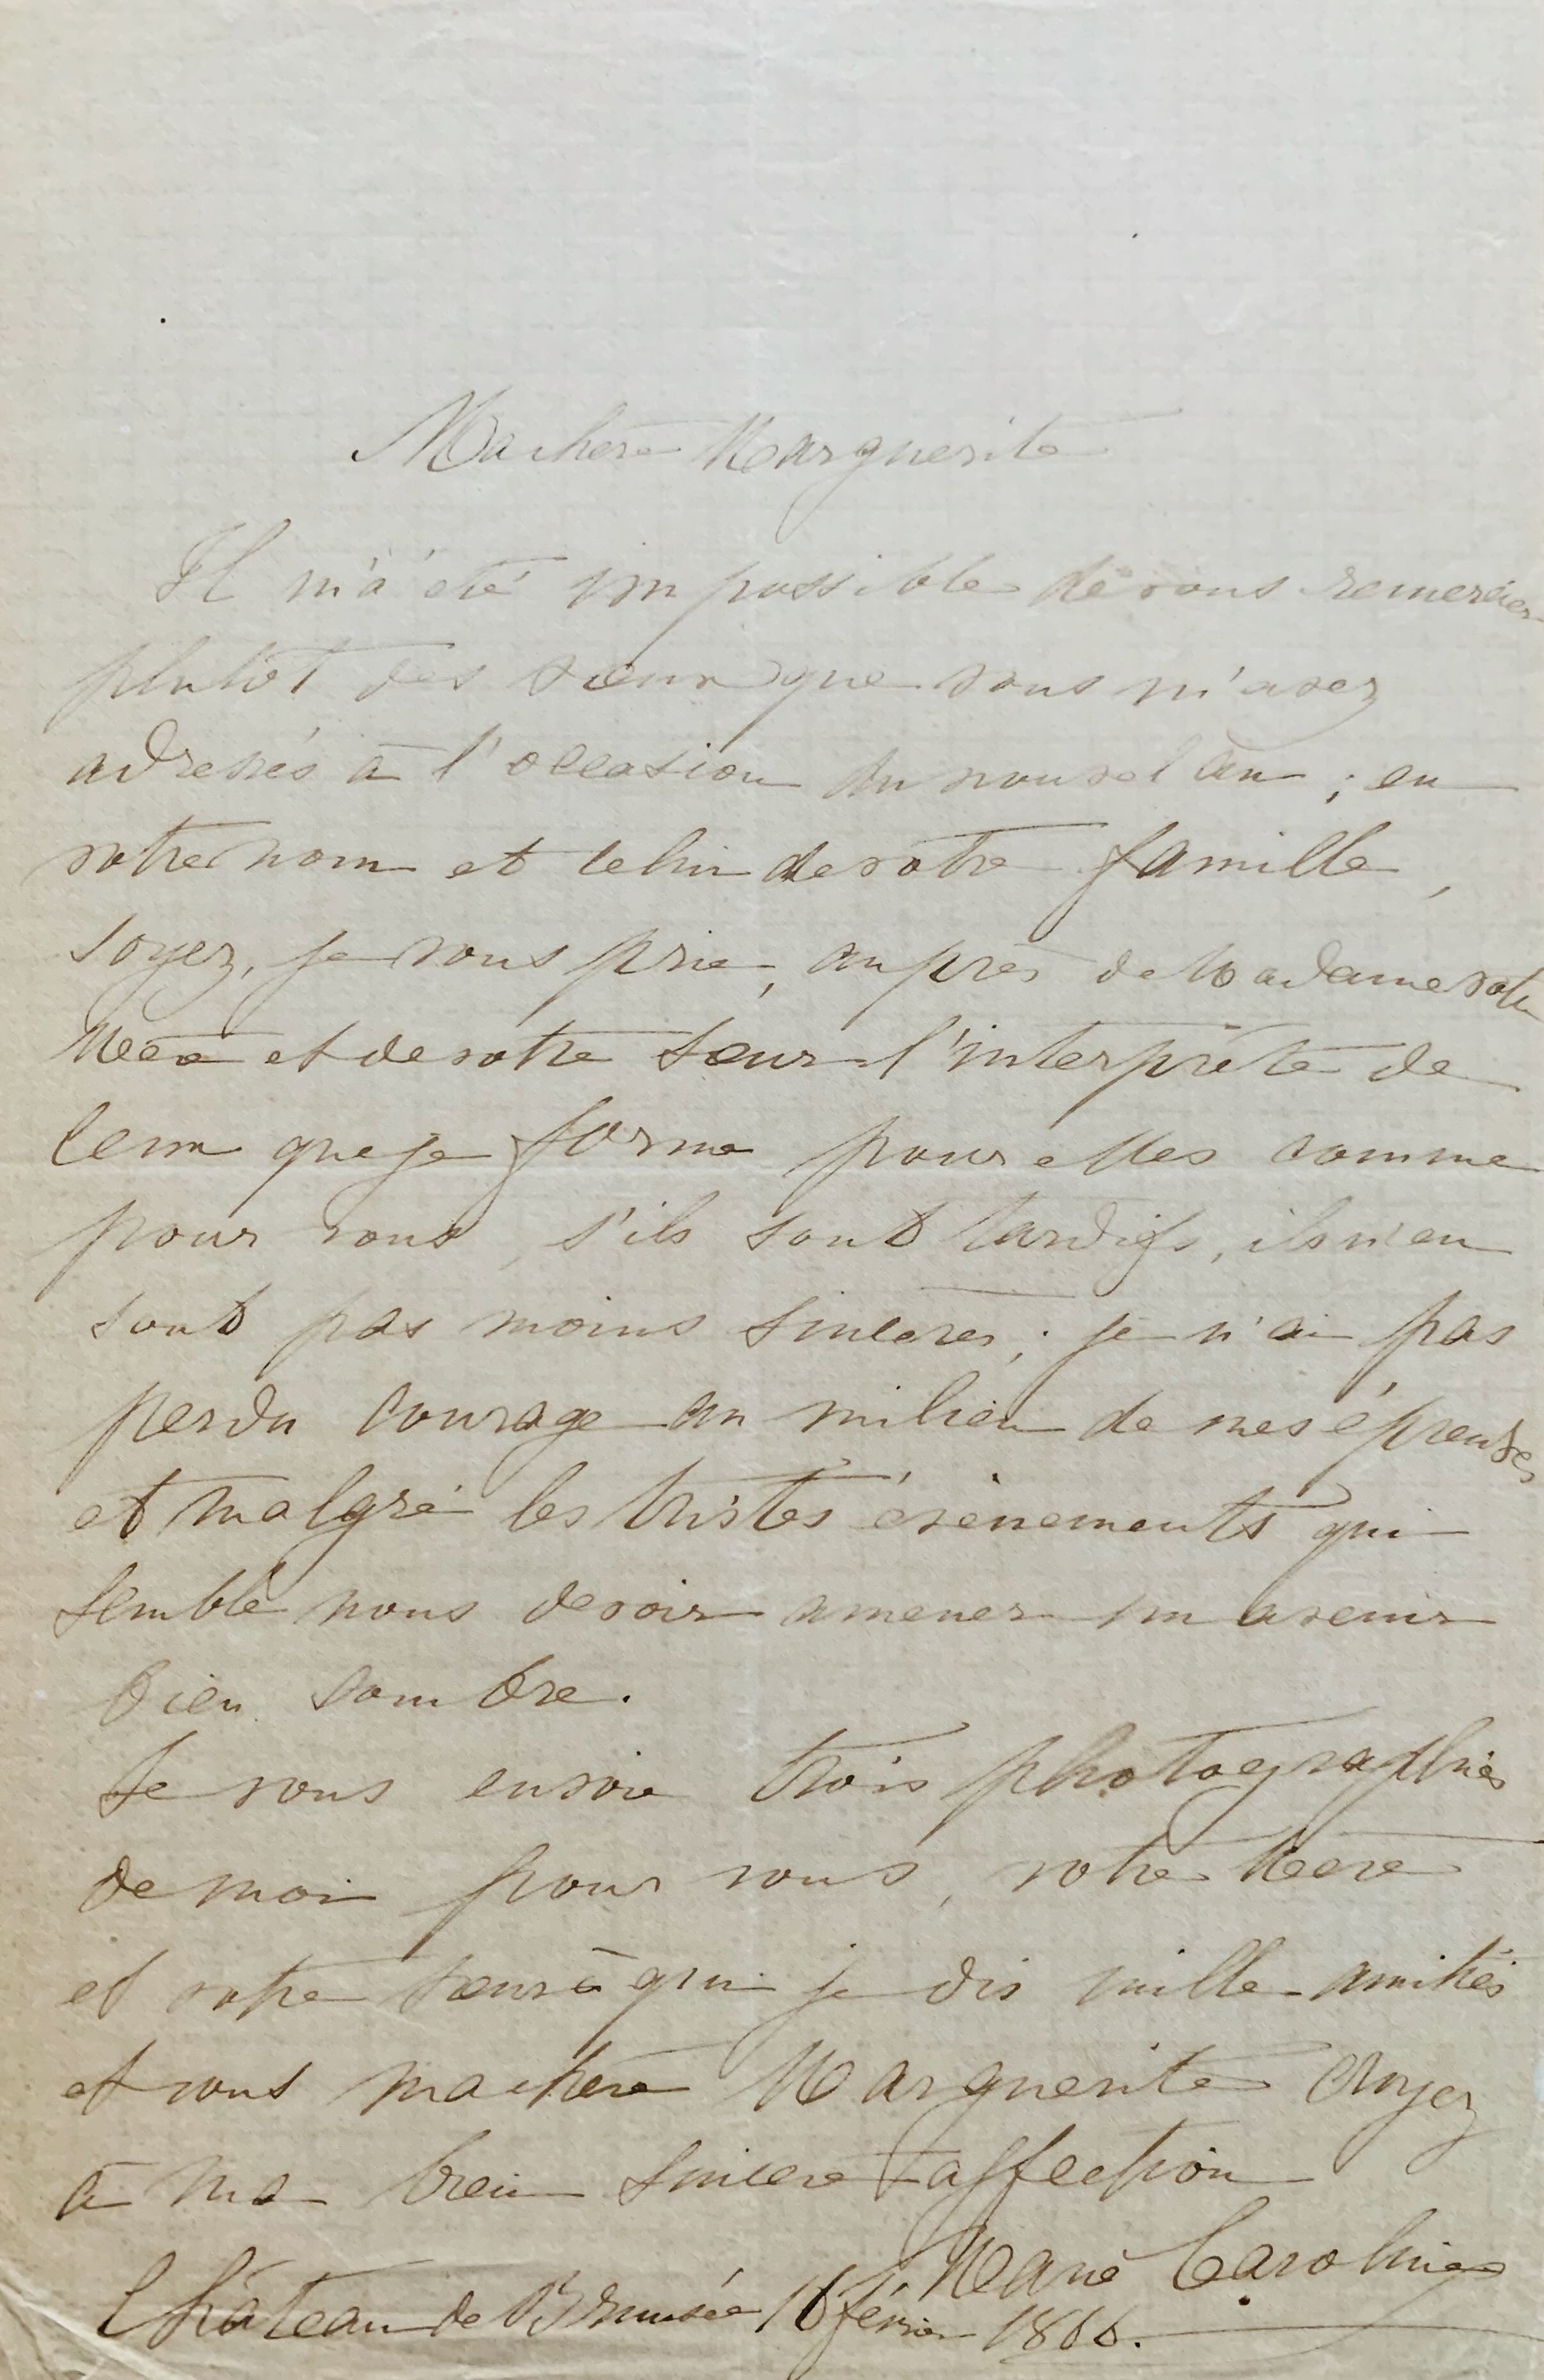 Ma chère Marguerite
Il m'a été impossible de vous remercier
plutôt des vœux que vous m'avez
adressés à l'occasion du nouvel an ; en
votre nom et celui de votre famille,
soyez, je vous prie, auprès de Madame votre
Mère et de votre sœur l'interprète de
ceux que je forme pour elles comme
pour vous, s'ils sont tardifs, ils n'en
sont pas moins sincères ; je n'ai pas
perdu courage au milieu de mes épreuves
et malgré les tristes évènements qui
semble nous devoir amener un avenir
bien sombre.
Je vous envoie trois photographies
de moi pour vous, votre Mère
et votre sœur à qui je dis mille amitiés
et vous ma chère Marguerite croyez
à ma bien sincère affection
Marie Caroline
Château de 16 février 1866.